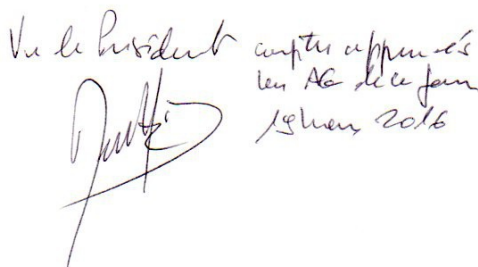 Vu le Président
comptes approuvés
en AG de ce jour
19 mars 2016